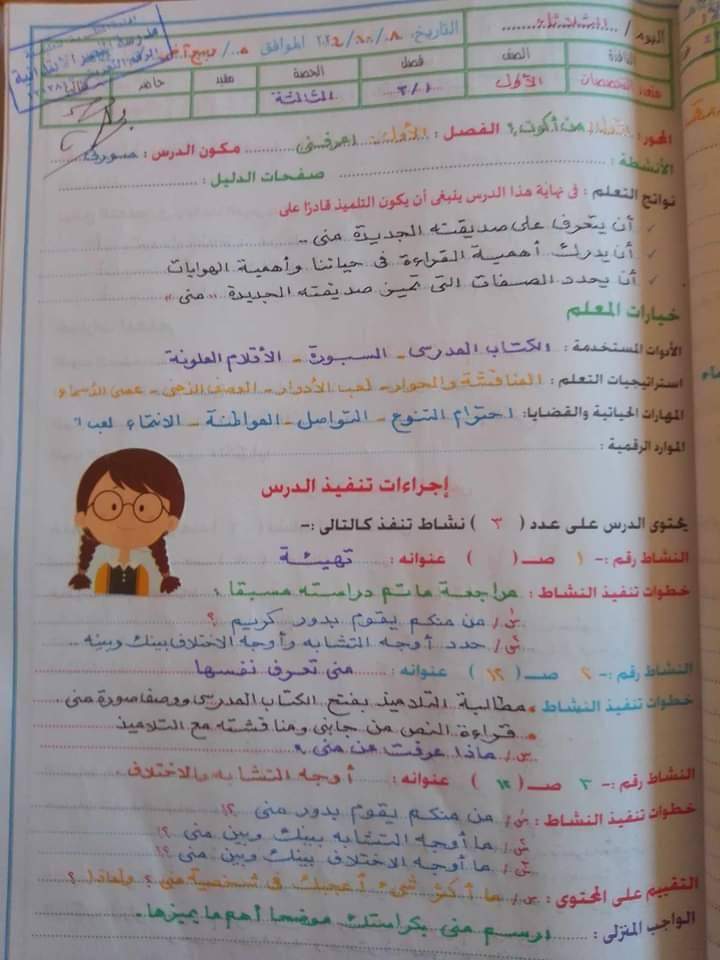 اليوم / الثلاثاء
التاريخ: ٨ /١٠/ ٢٠٢٤ الموافق ٥ / ربيع آخر
المادة الصف فصل الحصة مقيد حاضر
متعدد التخصصات الأول ٣/١ الثالثة
المحور: من أكون؟ الفصل: الأول مكون الدرس:
الأنشطة: صفحات الدليل:
نواتج التعلم: فى نهاية هذا الدرس ينبغى أن يكون التلميذ قادرًا على
✓ أن يتعرف على صديقته الجديدة منى ..
✓ أن يدرك أهمية القراءة فى حياتنا وأهمية الهوايات
✓ أن يحدد الصفات التى تميز صديقته الجديدة "منى"
خيارات المعلم
الأدوات المستخدمة: الكتاب المدرسى - السبورة - الأقلام الملونة
استراتيجيات التعلم: المناقشة والحوار - لعب الأدوار - العصف الذهنى - عصى الأسماء
المهارات الحياتية والقضايا: احترام التنوع - التواصل - المواطنة - الانتماء
الموارد الرقمية:
إجراءات تنفيذ الدرس
يحتوى الدرس على عدد ( ٣ ) نشاط تنفذ كالتالى :-
النشاط رقم :- ١ صـ ( ) عنوانه : تهيئة
خطوات تنفيذ النشاط : مراجعة ما تم دراسته مسبقا :
س/ من منكم يقوم بدور كريم ؟
س/ حدد أوجه التشابه وأوجه الاختلاف بينك وبينه ..
النشاط رقم :- ٢ صـ ( ١٢ ) عنوانه : منى تعرف نفسها
خطوات تنفيذ النشاط • مطالبة التلاميذ بفتح الكتاب المدرسى ووصف صورة منى.
• قراءة النص من جابنى ومناقشته مع التلاميذ
س/ ماذا عرفت عن منى ؟
النشاط رقم :- ٣ صـ ( ١٢ ) عنوانه : أوجه التشابه والاختلاف
خطوات تنفيذ النشاط : س/ من منكم يقوم بدور منى ؟!
س/ ما أوجه التشابه بينك وبين منى ؟!
س/ ما أوجه الاختلاف بينك وبين منى ؟!
التقييم على المحتوى : س/ ما أكثر شئ أعجبك فى شخصية منى ؟ ولماذا ؟
الواجب المنزلى : ارسم منى بكراستك موضحا أهم ما يميزها.